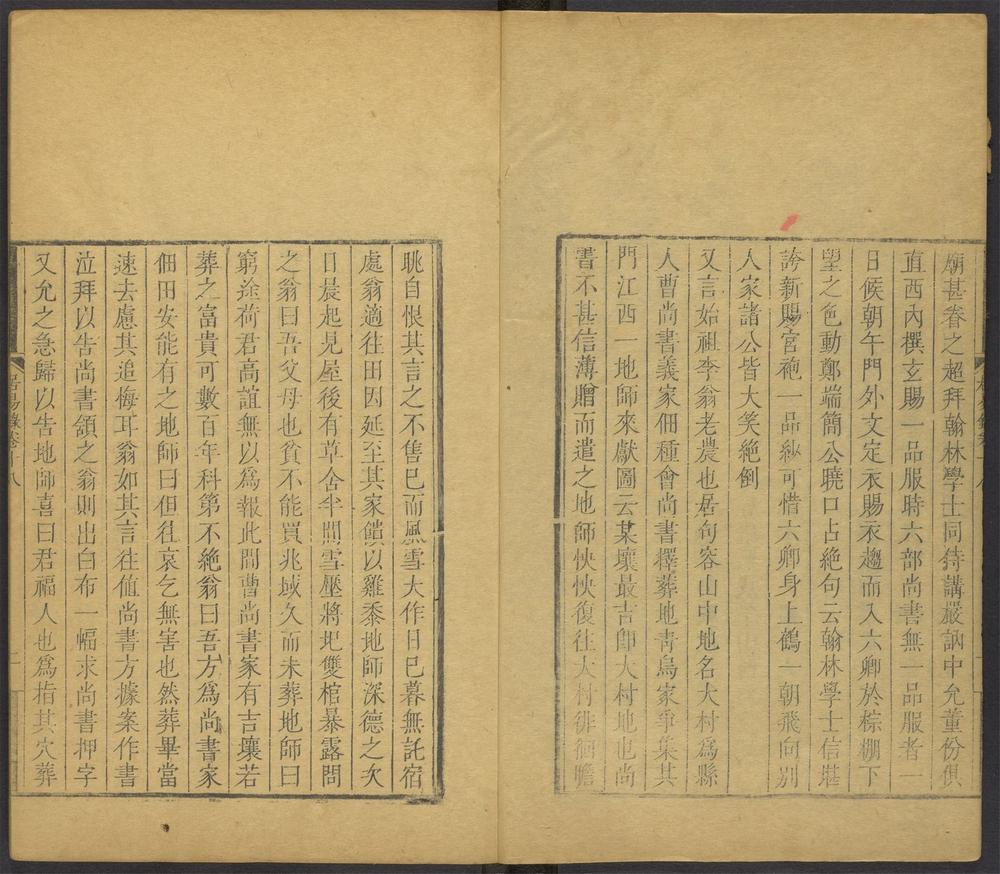 廟甚眷之超拜翰林學士同侍講嚴訥中允董份俱
直西內撰玄賜一品服時六部尚書無一品服者一
日候朝午門外文定衣賜衣趨而入六卿於棕棚下
望之色動鄭端簡公曉口占絶句云翰林學士信堪
誇新賜宮袍一品紗可惜六卿身上鶴一朝飛向別
人家諸公皆大笑絶倒
又言始祖李翁老農也居句容山中地名大村爲縣
人曹尚書義家佃種會尚書擇葬地青烏家爭集其
門江西一地師來獻圖云某壤最吉卽大村地也尚
書不甚信薄贈而遣之地師怏怏復往大村徘徊瞻
眺自恨其言之不售已而風雪大作日已暮無託宿
處翁適往田因延至其家饋以雞黍地師深德之次
日晨起見屋後有草舍半間雪壓將圯雙棺暴露問
之翁曰吾父母也貧不能買兆域久而未葬地師曰
窮途荷君高誼無以爲報此間曹尚書家有吉壤若
葬之富貴可數百年科第不絶翁曰吾方爲尚書家
佃田安能有之地師曰但往哀乞無害也然葬畢當
速去慮其追悔耳翁如其言往值尚書方據案作書
泣拜以告尚書頷之翁則出白布一幅求尚書押字
又允之急歸以告地師喜曰君福人也爲指其穴葬
居易錄卷十八
二